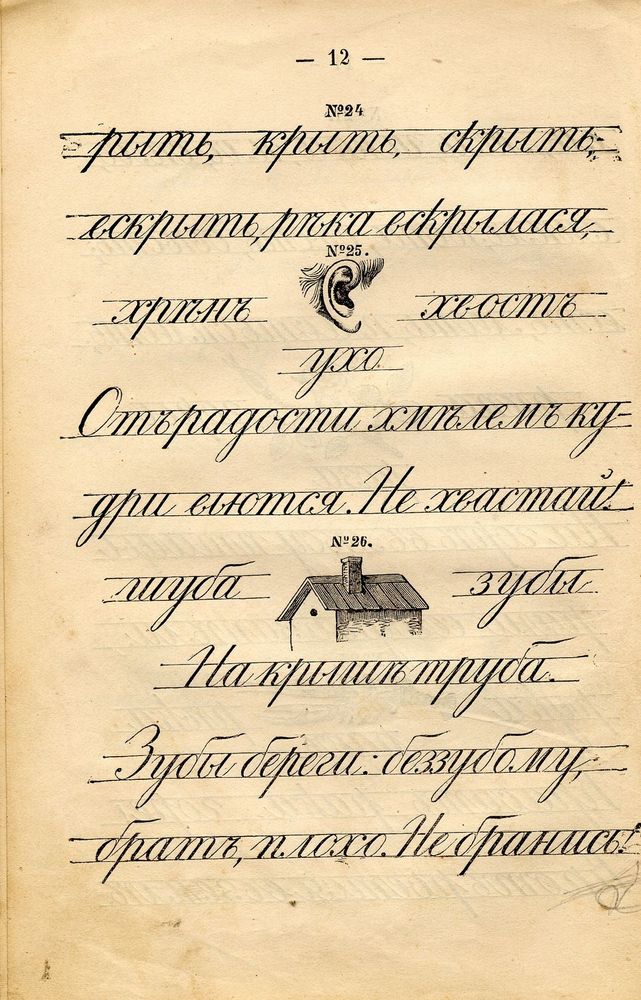 — 12 —
№24
рыть, крыть, скрыть,
вскрыть, рѣка вскрылася,
№25.
хрѣнъ хвостъ
ухо.
Отъ радости хмѣлемъ ку-
дри вьются. Не хвастай!
№26.
шуба зубы.
На крышѣ труба.
Зубы береги: беззубому,
братъ, плохо. Не бранись!